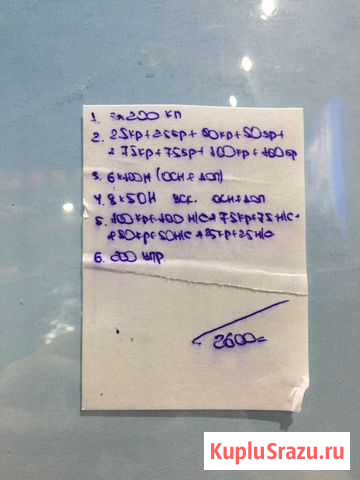 1. 2x200 кп
2. 25кр+25бр+50кр+50бр+
+75кр+75бр+100кр+100бр
3. 6x100Н (осн+доп)
4. 8x50Н уск. осн+доп
5. 100кр+100 Н/С+75кр+75Н/С+
+50кр+50Н/С+25кр+25Н/С
6. КПР
2600=
KupluSrazu.ru